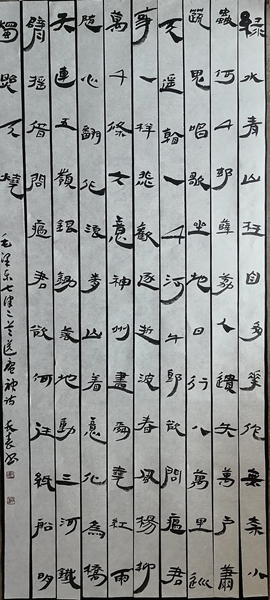 綠水青山枉自多華佗無奈小
蟲何千邨薜荔人遺矢萬戶蕭
疏鬼唱歌坐地日行八萬里巡
天遥看一千河牛郎欲問瘟君
事一样悲歡逐逝波春風楊柳
萬千條六億神州盡舜堯紅雨
隨心翻作浪青山着意化為橋
天連五嶺銀鋤落地動三河鐵
臂摇借問瘟君欲何往紙船明
燭照天燒
毛泽东七律二首送瘟神